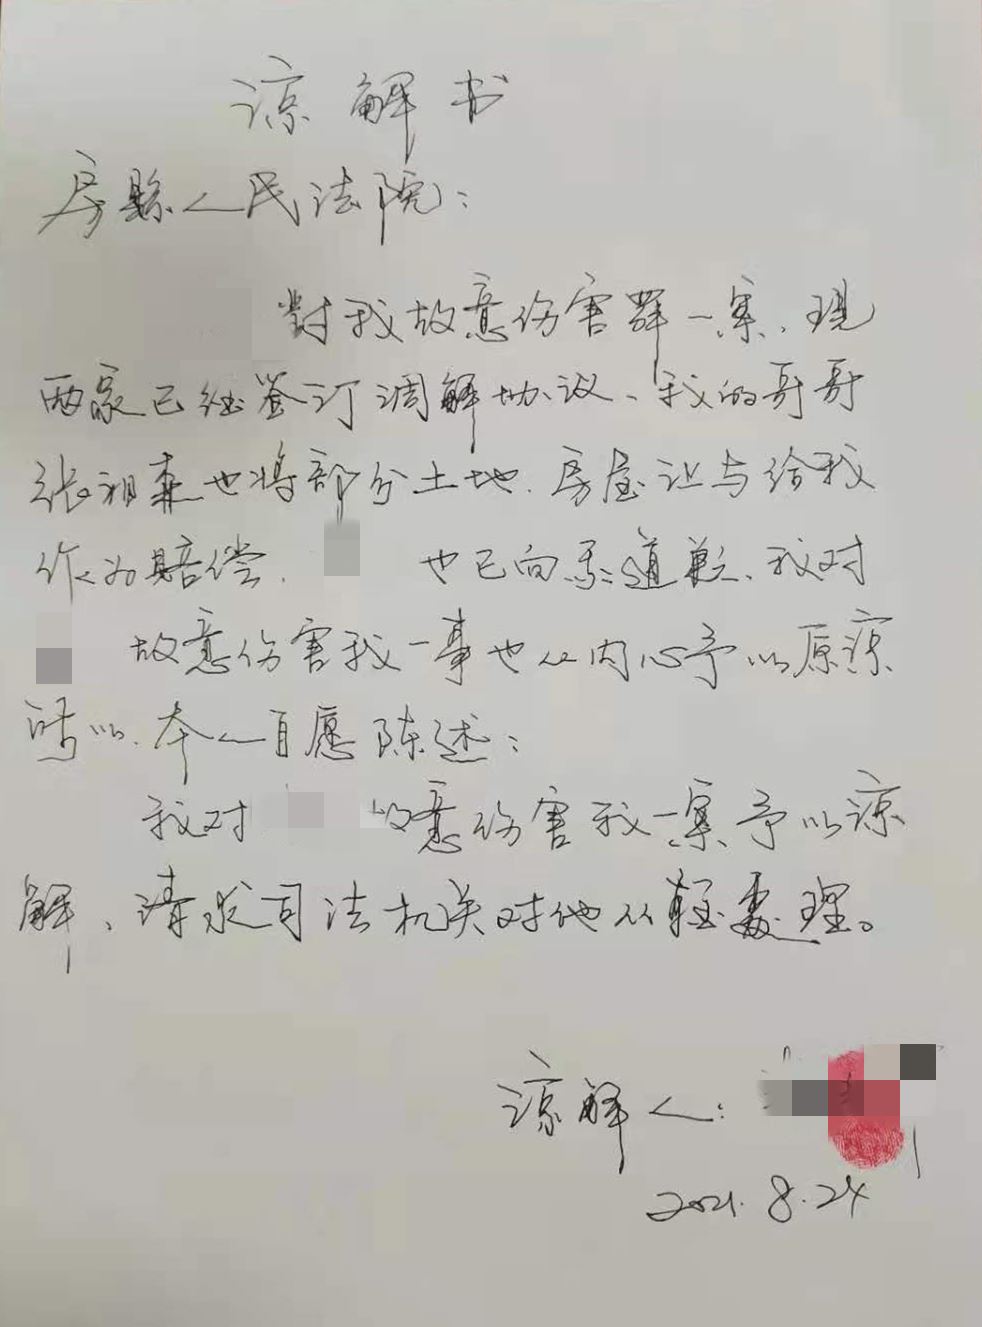 谅解书
房縣人民法院：
對我故意伤害罪一案，现
两家已经签订调解协议、我的哥哥
张祖森也将部分土地、房屋让与给我
作为赔偿，也已向我道歉、我对
故意伤害我一事也从内心予以原谅
所以，本人自愿陈述：
我对 故意伤害我一案予以谅
解，请求司法机关对他从轻處理。
谅解人：
2021.8.24